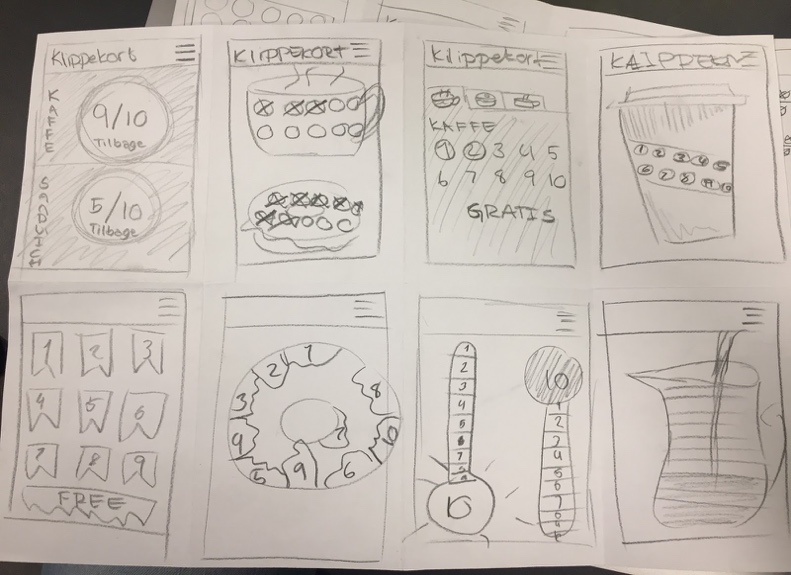 Klippekort
KAFFE
9/10
Tilbage
SANDWICH
5/10
Tilbage
KLIPPEKORT
Klippekort
KAFFE
1 2 3 4 5
6 7 8 9 10
GRATIS
1 2 3 4 5
6 7 8 9 10
1 2 3
4 5 6
7 8 9
FREE
1
2
3
8
10
9
6
9
6
1
2
3
4
5
6
7
8
9
10
10
1
2
3
4
5
6
7
8
9